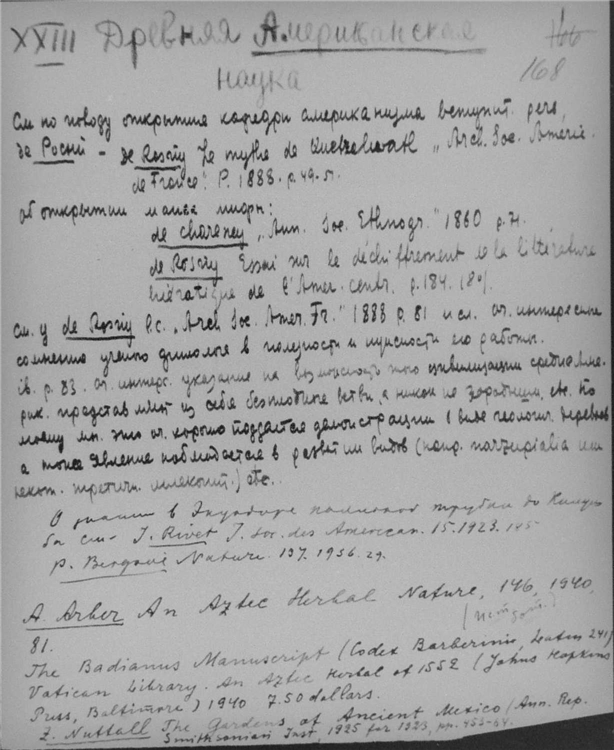 XXIII Древняя Американская 166
наука 168
См по поводу открытия кафедры американизма вступит. речь
де Росни - de Rosny Le mythe de Quetzalcoatl „Arch. Soc. Améric.
de France". P. 1888. p. 49-51.
об открытии майск цифр:
de Charency „Ann. Soc. Ethnogr." 1860 p. 71.
de Rosny Essai sur le déchiffrement de la littérature
hiératique de l'Amer. centr. p. 184.
См. у de Rosny l.c. „Arch. Soc. Amer. Fr." 1888 p. 81 и сл. оч. интересные
сомнения ученого филолога в полезности и нужности его работы.
ib. p. 83. оч. интерес. указание на возможность что цивилизации средн. Аме-
рик. представляют из себя безплодные ветви, а никак не зародыши, etc. По
моему мн. это оч. хорошо поддается демонстрации (в виде геологич. деревьев
а тоже явление наблюдается в развитии видов (напр. marsupialia или
некот. третичн. млекопит.) etc.
О знании в Эквадоре платины до Колум-
ба см. J. Rivet J. Soc. des American. 15. 1923.
P. Bergsöe Nature 137. 1936. 29.
A. Arber An Aztec Herbal Nature, 146, 1940,
81.
The Badianus Manuscript (Codex Barberini, Latin 241)
Vatican Library. An Aztec Herbal of 1552 (Johns Hopkins
Press, Baltimore) 1940 7.50 dollars.
Z. Nuttall The Gardens of Ancient Mexico / Ann. Rep.
Smithsonian Inst, 1925 for 1923, pp. 453-64.